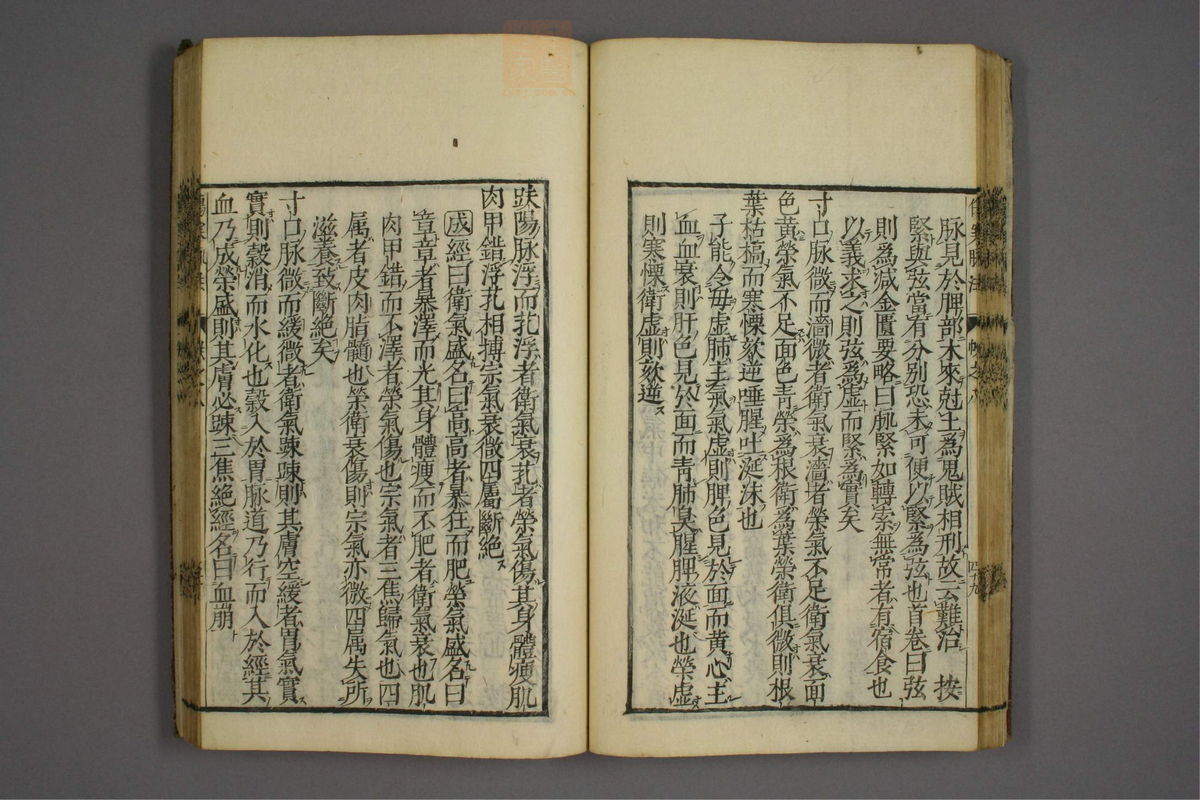 脉見於脾部木來尅土爲鬼賊相刑故云難治　按
緊與弦當有分別恐未可便以緊爲弦也首卷曰弦
則爲减金匱要略曰脈緊如轉索無常者有宿食也
以義求之則弦爲虚而緊爲實矣
寸口脉微而濇微者衛氣衰濇者榮氣不足衛氣衰面
色黄榮氣不足面色青榮爲根衛爲葉榮衛俱微則根
葉枯槁而寒慄欬逆唾腥吐涎沫也
子能令母虚肺主氣氣虚則脾色見於面而黄心主
血血衰則肝色見於面而青肺臭腥脾液涎也榮虚
則寒慄衛虚則欬逆
趺陽脉浮而芤浮者衛氣衰芤者榮氣傷其身體瘦肌
肉甲錯浮芤相摶宗氣衰微四屬斷絶
成經曰衛氣盛名曰高高者暴狂而肥榮氣盛名曰
章章者暴澤而光其身體瘦而不肥者衛氣衰也肌
肉甲錯而不澤者榮氣傷也宗氣者三焦歸氣也四
属者皮肉脂髓也榮衛衰傷則宗氣亦微四属失所
滋養致斷絶矣
寸口脉微而緩微者衛氣踈踈則其膚空緩者胃氣實
實則穀消而水化也穀入於胃脉道乃行而入於經其
血乃成榮盛則其膚必踈三焦絶經名曰血崩